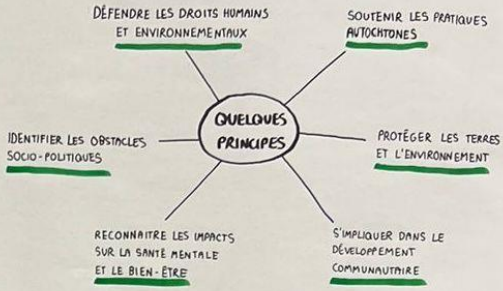 DÉFENDRE LES DROITS HUMAINS
ET ENVIRONNEMENTAUX
SOUTENIR LES PRATIQUES
AUTOCHTONES
QUELQUES
PRINCIPES
IDENTIFIER LES OBSTACLES
SOCIO-POLITIQUES
PROTÉGER LES TERRES
ET L'ENVIRONNEMENT
RECONNAITRE LES IMPACTS
SUR LA SANTÉ MENTALE
ET LE BIEN-ÊTRE
S'IMPLIQUER DANS LE
DÉVELOPPEMENT
COMMUNAUTAIRE